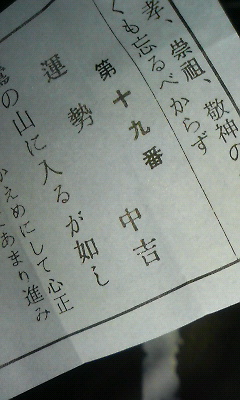 孝、崇祖、敬神の
くも忘るべからず
第十九番 中吉
運勢
の山に入るが如し
かえめにして心正
あまり進み